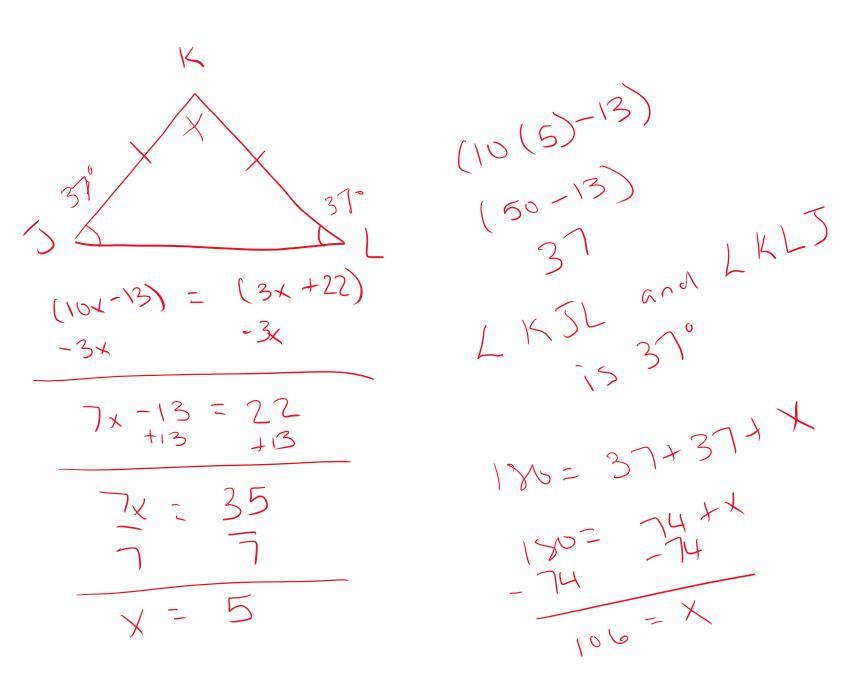 K
X
37°
37°
J
L
(10x-13) = (3x+22)
-3x -3x
7x -13 = 22
+13 +13
7x = 35
7 7
x = 5
(10(5)-13)
(50-13)
37
∠KJL and ∠KLJ
is 37°
180 = 37+37+ X
180= 74 +x
-74 -74
106 = X